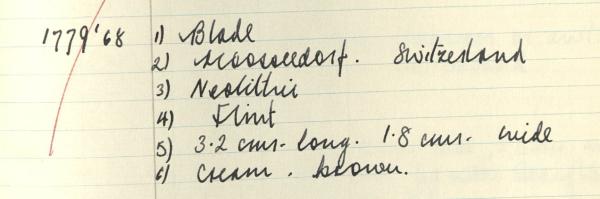 1779'68 1) Blade
2) Moosseedorf. Switzerland
3) Neolithic
4) Flint
5) 3.2 cms. long. 1.8 cms. wide
6) Cream. brown.